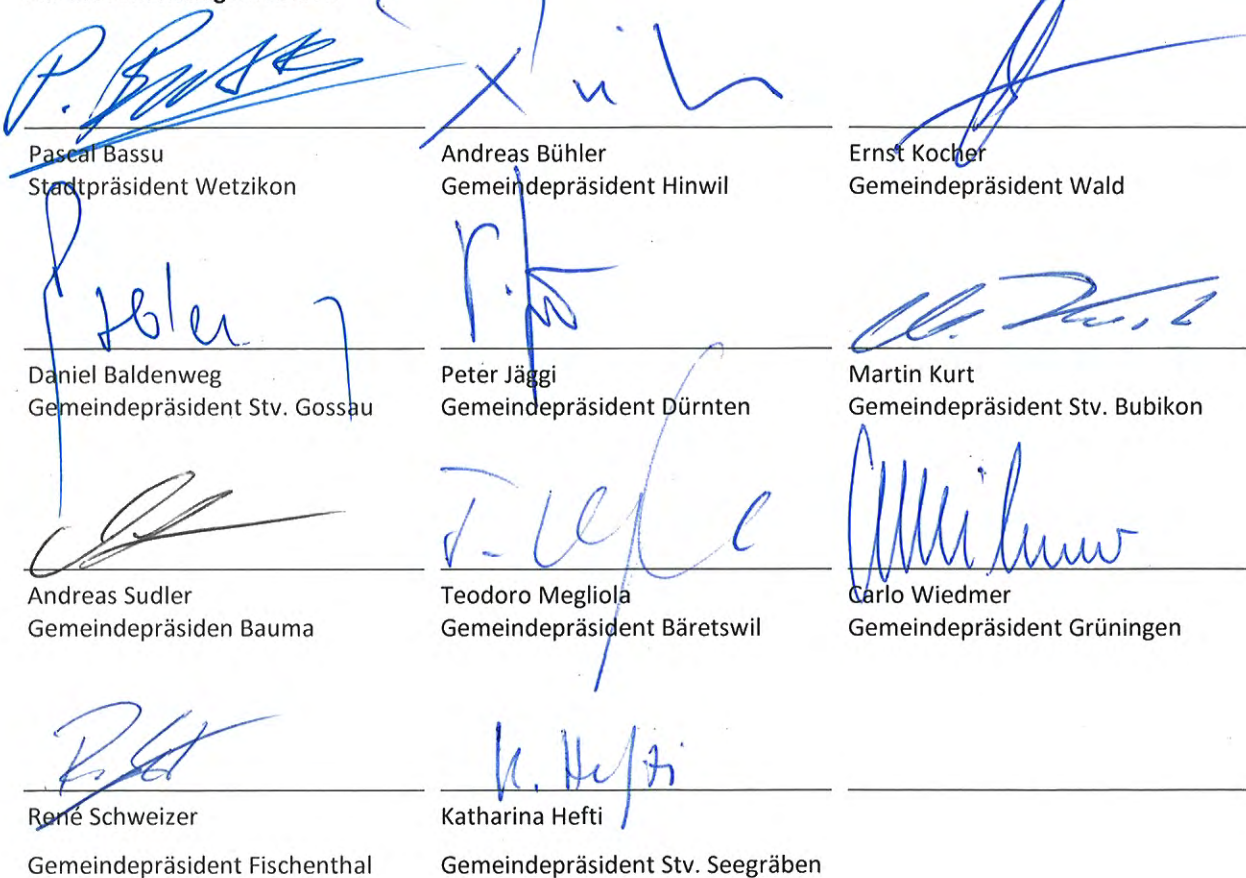 Pascal Bassu
Stadtpräsident Wetzikon
Andreas Bühler
Gemeindepräsident Hinwil
Ernst Kocher
Gemeindepräsident Wald
Daniel Baldenweg
Gemeindepräsident Stv. Gossau
Peter Jäggi
Gemeindepräsident Dürnten
Martin Kurt
Gemeindepräsident Stv. Bubikon
Andreas Sudler
Gemeindepräsiden Bauma
Teodoro Megliola
Gemeindepräsident Bäretswil
Carlo Wiedmer
Gemeindepräsident Grüningen
K. Hefti
René Schweizer
Gemeindepräsident Fischenthal
Katharina Hefti
Gemeindepräsident Stv. Seegräben